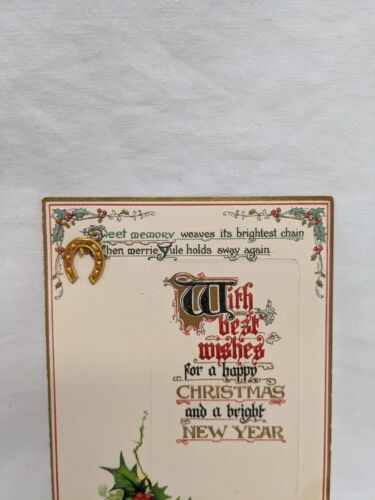 Sweet memory weaves its brightest chain
When merrie Yule holds sway again.
With
best
wishes
for a happy
CHRISTMAS
and a bright
NEW YEAR